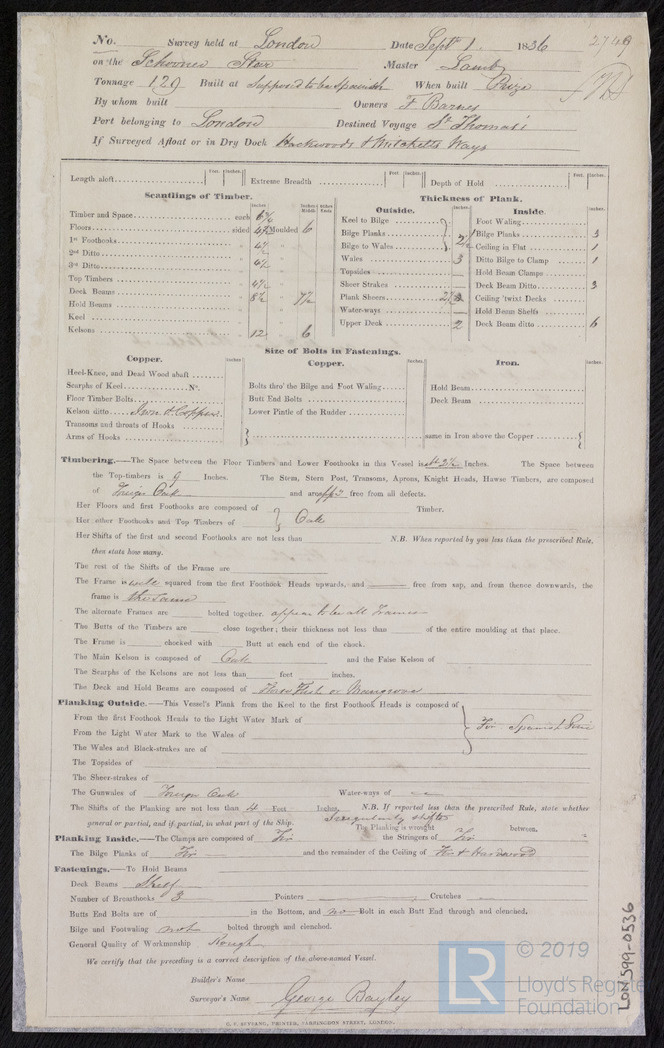 No. Survey held at London Date Sept 1. 1836 2749
on the Schooner Star Master Lamb
Tonnage 129 Built at Supposed to be Spanish When built Prize
By whom built Owners F Barnes
Port belonging to London Destined Voyage St Thomas's
If Surveyed Afloat or in Dry Dock Hackwoods & Mitchells Ways
Length aloft Feet. Inches. Extreme Breadth Feet. Inches. Depth of Hold Feet. Inches.
Scantlings of Timber. Thickness of Plank.
Inches Inches Middle Inches Ends Outside. Inches. Inside. Inches.
Timber and Space each 6½ Keel to Bilge Foot Waling
Floors sided 4½ Moulded 6 Bilge Planks } 2½ Bilge Planks 3
1st Foothooks " 4½ Bilge to Wales Ceiling in Flat 1
2nd Ditto " Wales 3 Ditto Bilge to Clamp 1
3rd Ditto " 4½ Topsides Hold Beam Clamps
Top Timbers " 4½ Sheer Strakes Deck Beam Ditto 3
Deck Beams 8½ " 7½ Plank Sheers 2½ Ceiling 'twixt Decks
Hold Beams " Water-ways Hold Beam Shelfs
Keel " Upper Deck 2 Deck Beam ditto 6
Kelsons 12 " 6
Size of Bolts in Fastenings.
Copper. Inches. Copper. Inches. Iron. Inches.
Heel-Knee, and Dead Wood abaft
Scarphs of Keel No. Bolts thro' the Bilge and Foot Waling Hold Beam
Floor Timber Bolts Butt End Bolts Deck Beam
Kelson ditto Iron & Copper Lower Pintle of the Rudder
Transoms and throats of Hooks
Arms of Hooks { same in Iron above the Copper {
Timbering.—The Space between the Floor Timbers and Lower Foothooks in this Vessel is 2½ Inches. The Space between
the Top-timbers is 9 Inches. The Stem, Stern Post, Transoms, Aprons, Knight Heads, Hawse Timbers, are composed
of Foreign Oak and are appd free from all defects.
Her Floors and first Foothooks are composed of Timber.
Her other Foothooks and Top Timbers of } Oak
Her Shifts of the first and second Foothooks are not less than N.B. When reported by you less than the prescribed Rule,
then state how many.
The rest of the Shifts of the Frame are
The Frame is well squared from the first Foothook Heads upwards, and free from sap, and from thence downwards, the
frame is the same
The alternate Frames are bolted together. appear to be all Frames
The Butts of the Timbers are close together; their thickness not less than of the entire moulding at that place.
The Frame is chocked with Butt at each end of the chock.
The Main Kelson is composed of Oak and the False Kelson of
The Scarphs of the Kelsons are not less than feet inches.
The Deck and Hold Beams are composed of or
Planking Outside.—This Vessel's Plank from the Keel to the first Foothook Heads is composed of
From the first Foothook Heads to the Light Water Mark of } Fir Spanish Pine
From the Light Water Mark to the Wales of
The Wales and Black-strakes are of
The Topsides of
The Sheer-strakes of
The Gunwales of Foreign Oak Water-ways of
The Shifts of the Planking are not less than 4 Feet Inches. N.B. If reported less than the prescribed Rule, state whether
general or partial, and if partial, in what part of the Ship. Irregularly shifted
The Planking is wrought between.
Planking Inside.—The Clamps are composed of Fir the Stringers of Fir
The Bilge Planks of Fir and the remainder of the Ceiling of Fir & Hardwood
Fastenings.—To Hold Beams
Deck Beams Shelf
Number of Breasthooks 3 Pointers Crutches
Butts End Bolts are of in the Bottom, and no Bolt in each Butt End through and clenched.
Bilge and Footwaling not bolted through and clenched.
General Quality of Workmanship Rough
We certify that the preceding is a correct description of the above-named Vessel.
Builder's Name
Surveyor's Name George Bayley
PRINTED, FARRINGDON STREET, LONDON.
LON 599-0536
LR © 2019
Lloyd's Register
Foundation